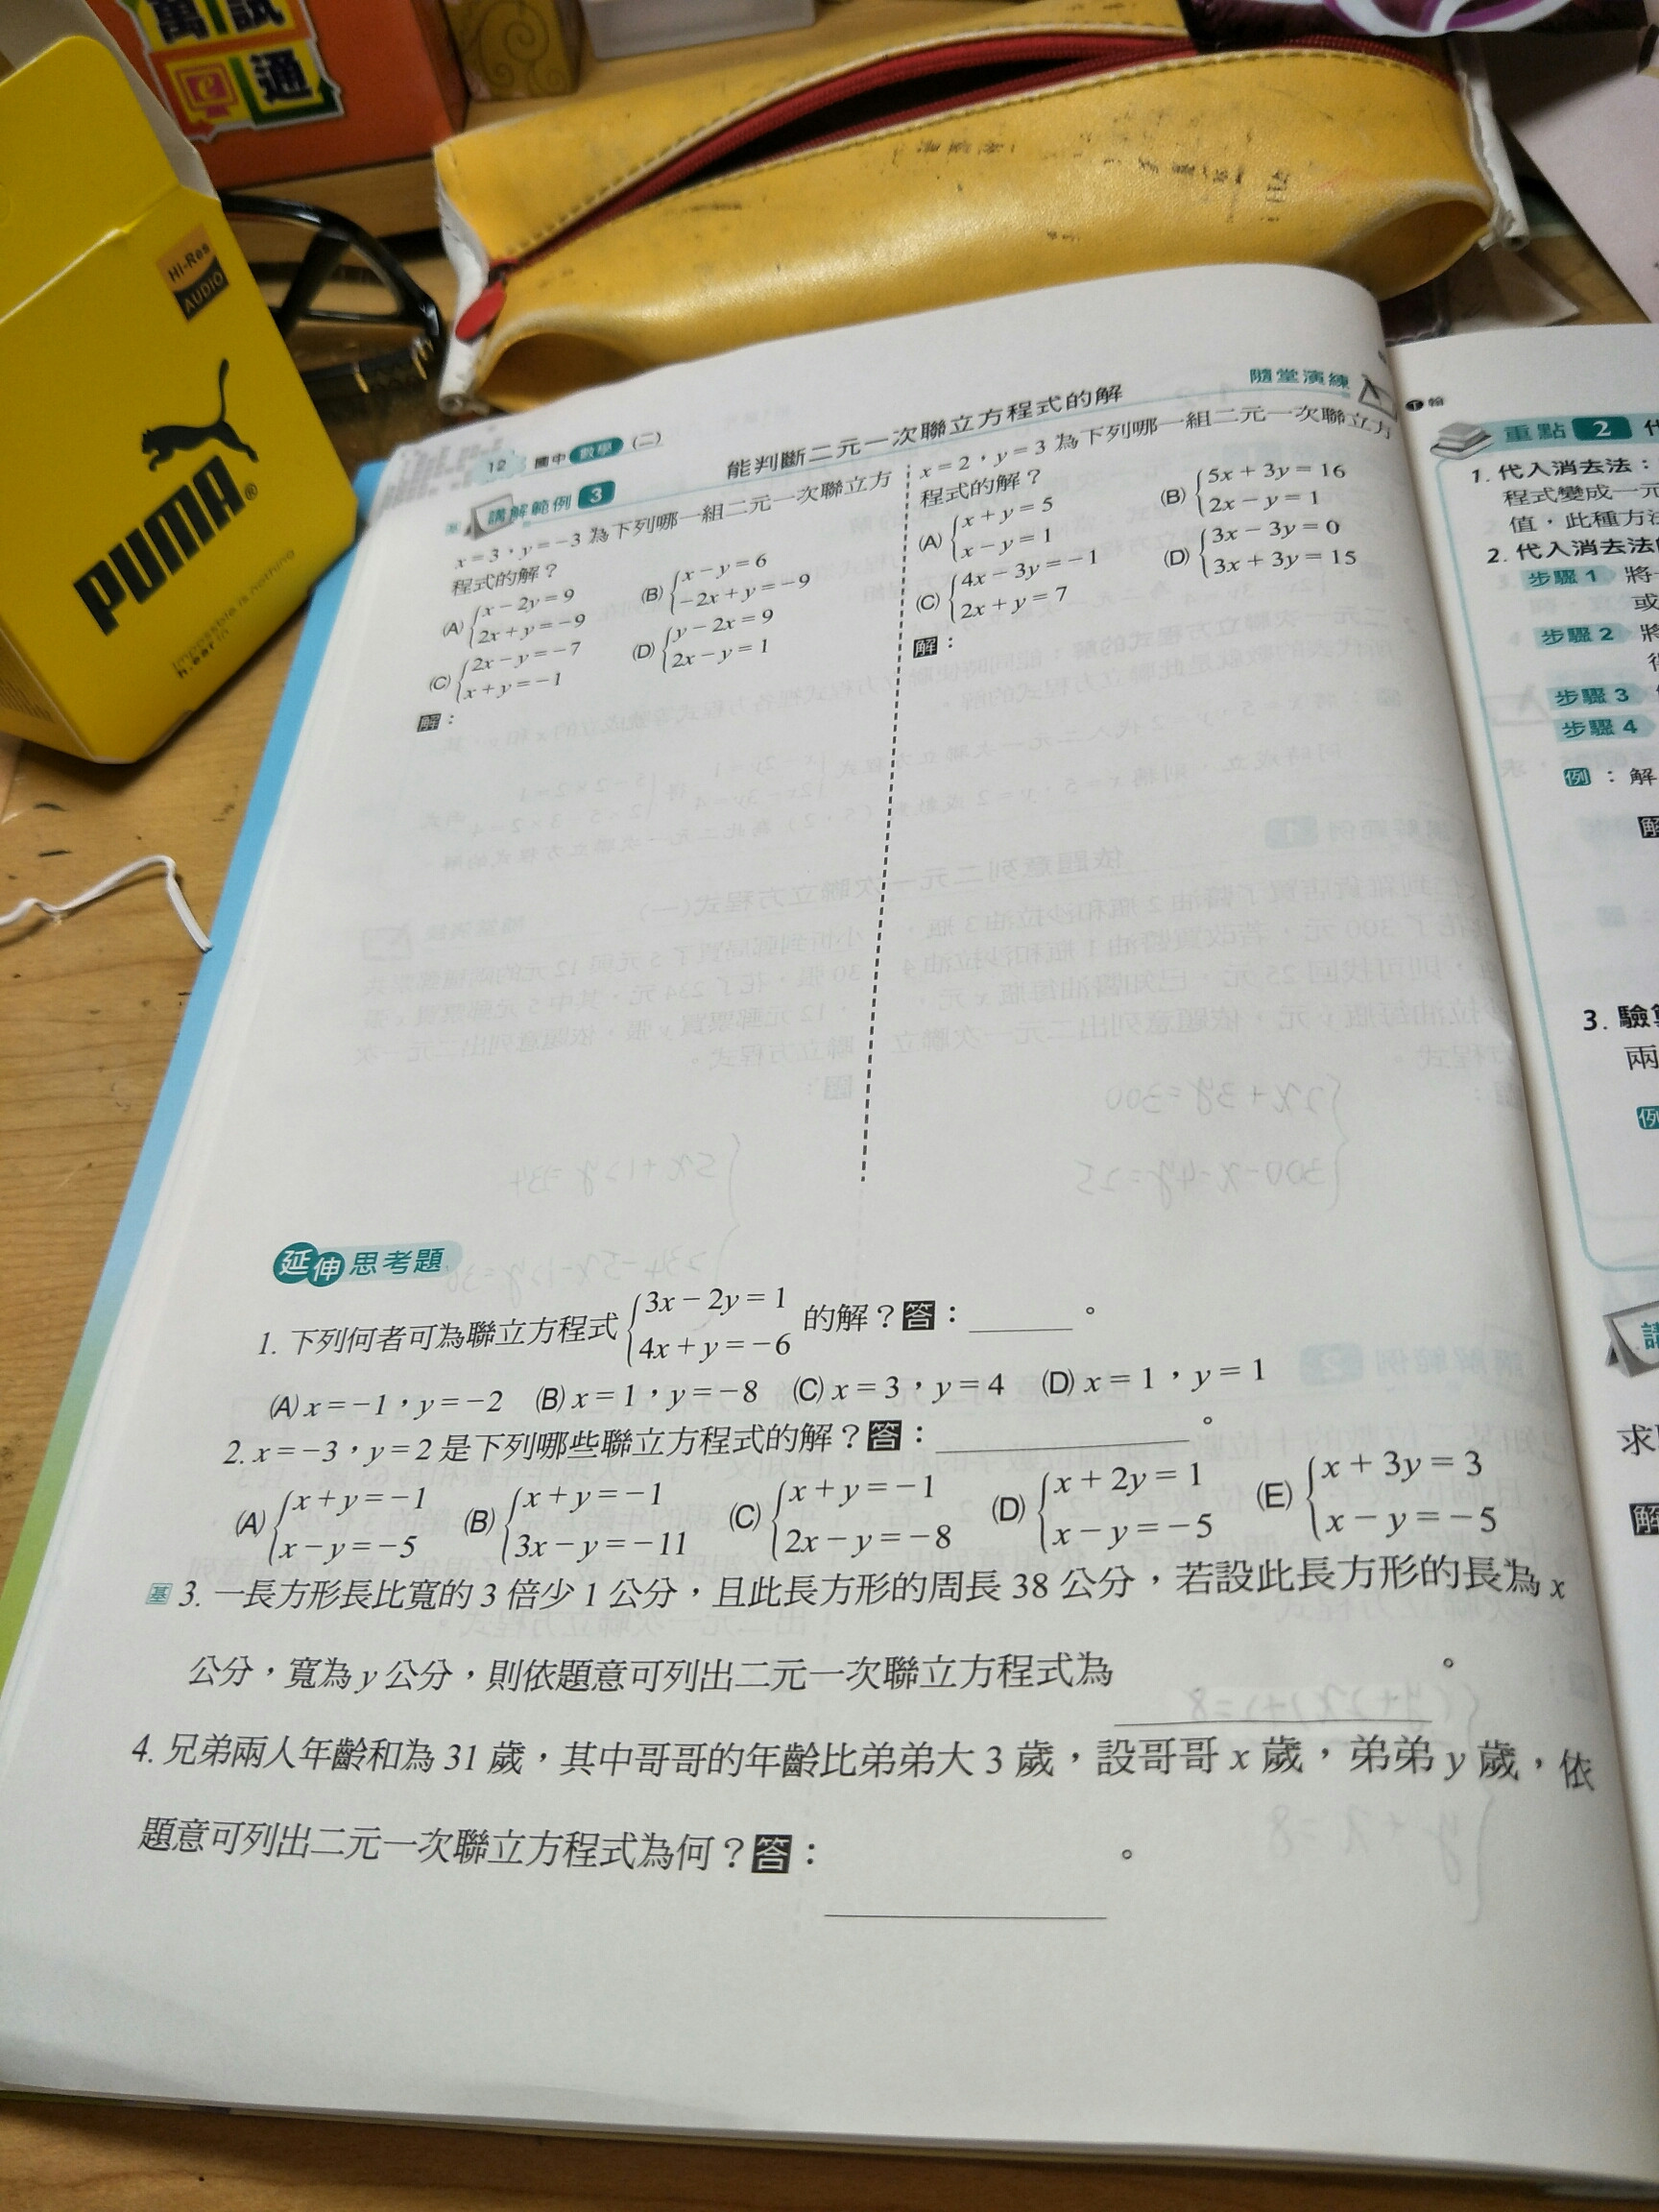 萬試
e通
Hi-Res
AUDIO
PUMA®
Impossible is nothing
12 國中 數學 (二)
能判斷二元一次聯立方程式的解
講解範例 3
x=3，y=−3 為下列哪一組二元一次聯立方
程式的解？
(A) {x−2y=9
2x+y=−9
(B) {x−y=6
−2x+y=−9
(C) {2x−y=−7
x+y=−1
(D) {y−2x=9
2x−y=1
解：
隨堂演練
x=2，y=3 為下列哪一組二元一次聯立方
程式的解？
(A) {x+y=5
x−y=1
(B) {5x+3y=16
2x−y=1
(C) {4x−3y=−1
2x+y=7
(D) {3x−3y=0
3x+3y=15
解：
延伸思考題
1. 下列何者可為聯立方程式 {3x−2y=1
4x+y=−6 的解？答：______。
(A) x=−1，y=−2 (B) x=1，y=−8 (C) x=3，y=4 (D) x=1，y=1
2. x=−3，y=2 是下列哪些聯立方程式的解？答：______。
(A) {x+y=−1
x−y=−5
(B) {x+y=−1
3x−y=−11
(C) {x+y=−1
2x−y=−8
(D) {x+2y=1
x−y=−5
(E) {x+3y=3
x−y=−5
基 3. 一長方形長比寬的 3 倍少 1 公分，且此長方形的周長 38 公分，若設此長方形的長為 x
公分，寬為 y 公分，則依題意可列出二元一次聯立方程式為______。
4. 兄弟兩人年齡和為 31 歲，其中哥哥的年齡比弟弟大 3 歲，設哥哥 x 歲，弟弟 y 歲，依
題意可列出二元一次聯立方程式為何？答：______。
翰
重點 2
1. 代入消去法：
程式變成一元
值，此種方法
2. 代入消去法
步驟 1 將
或
步驟 2 將
步驟 3
步驟 4
例：解
解
3. 驗算
兩
例
講
求
解